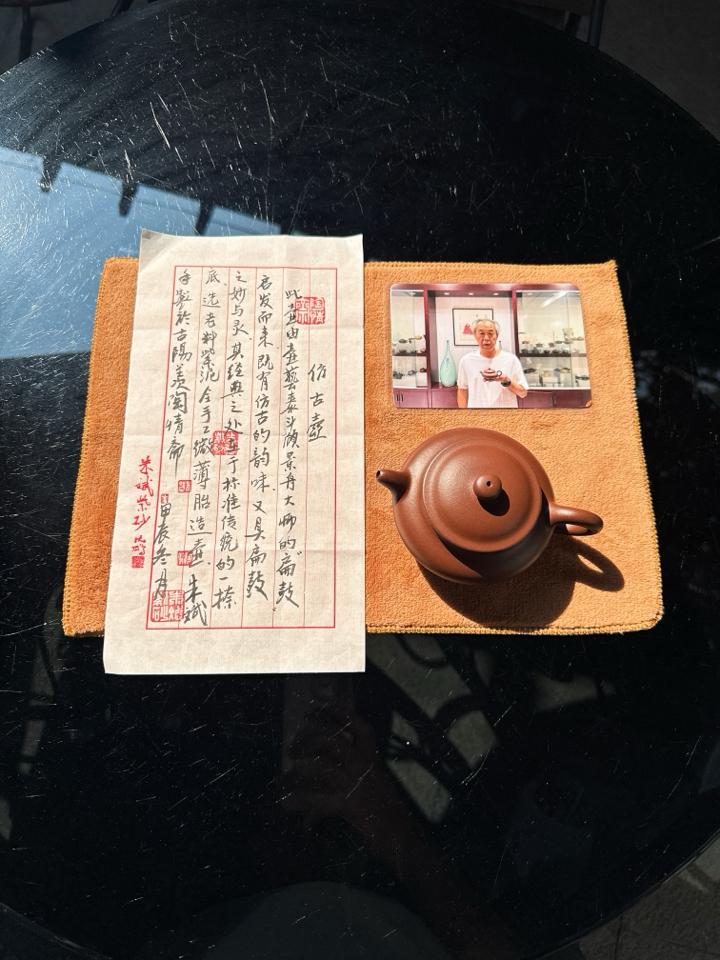 仿古壶
此壶由壶藝泰斗顾景舟大师的“扁鼓”
启发而来，既有仿古的韵味，又具扁鼓
之妙与灵，其经典之处在于标准传统的一捺
底，选老料紫泥全手工微薄胎造壶，朱斌
手製於古陽羡陶情斋
甲辰冬月
朱斌紫砂